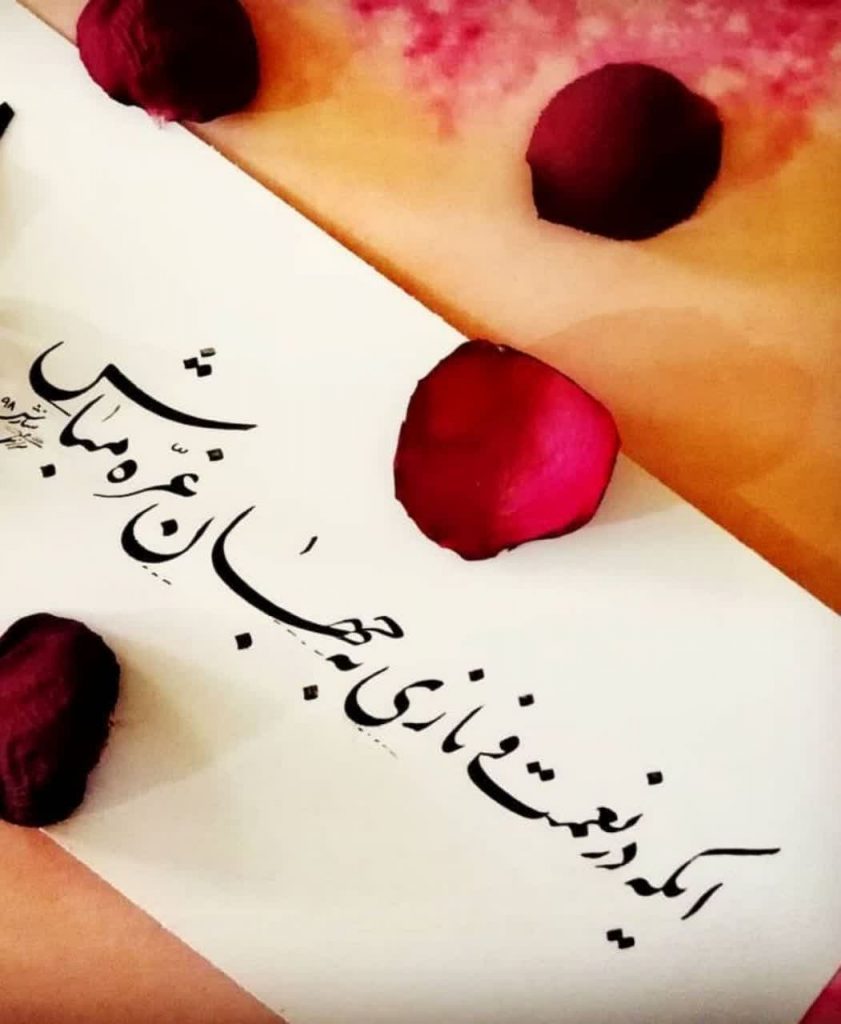 ایکه در نعمت و نازی به جهان غرّه مباش
۹۸